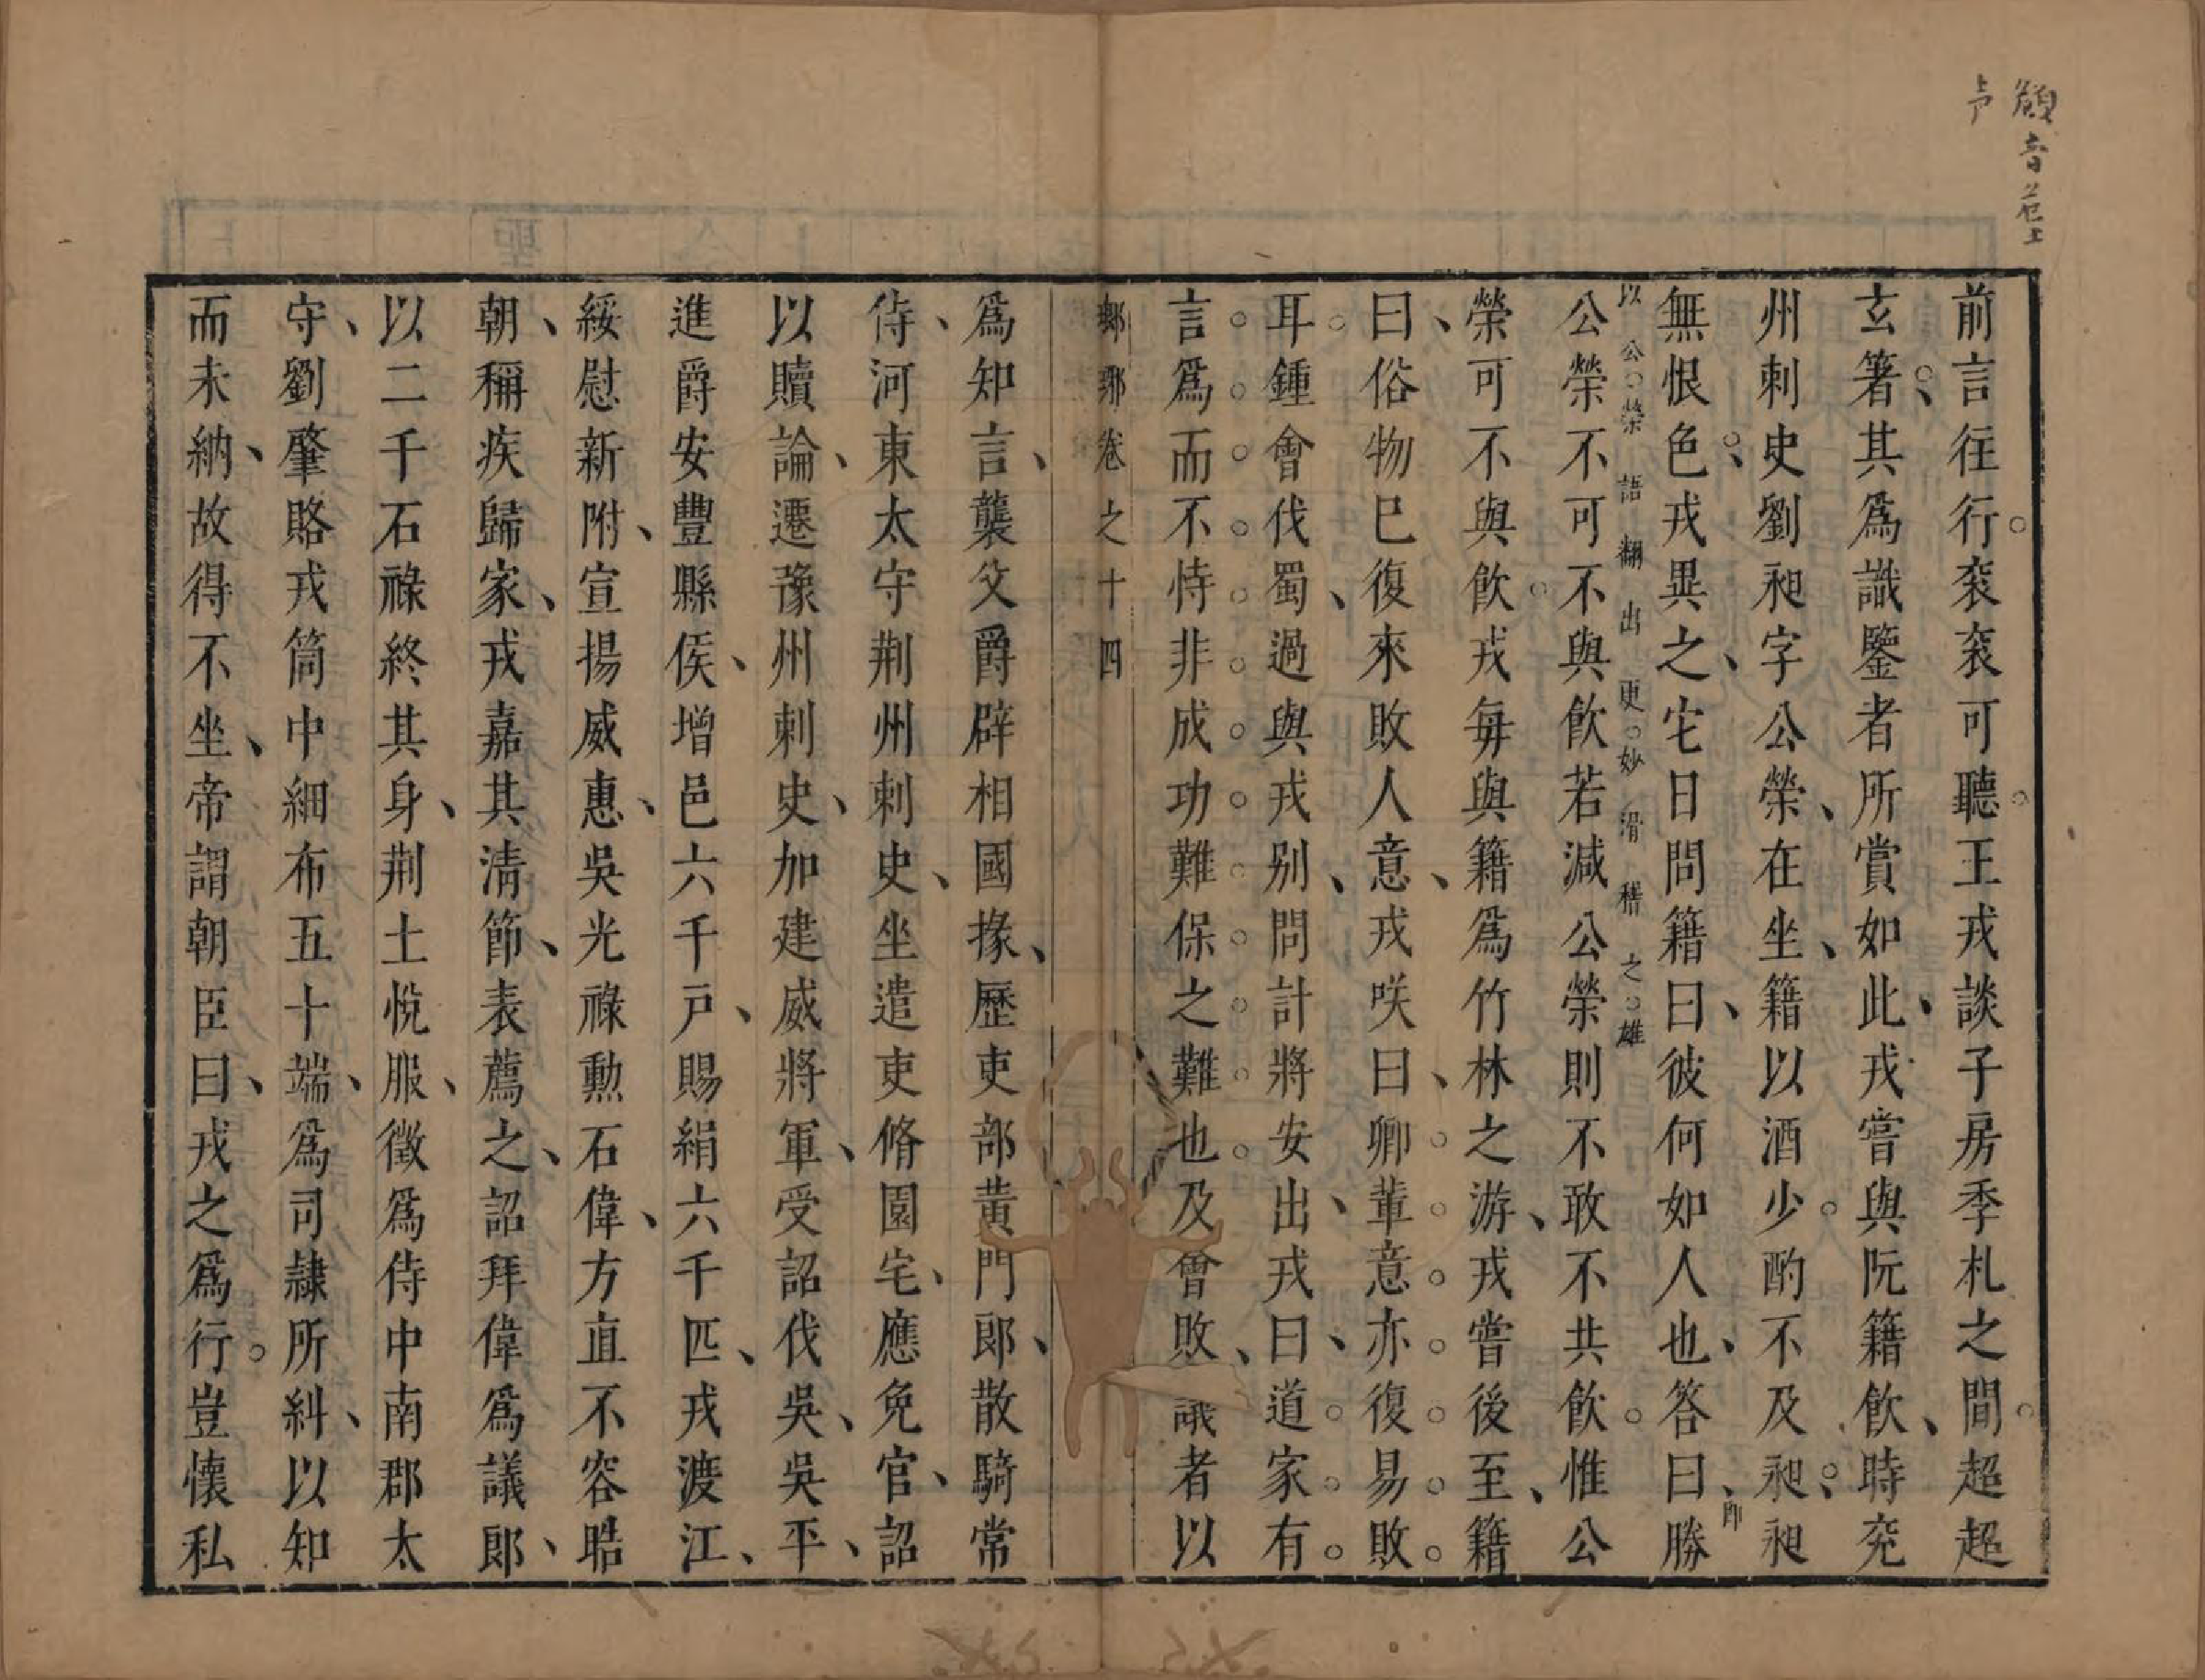 前言往行袞袞可聽王戎談子房季札之間超超
玄箸其爲識鑒者所賞如此戎嘗與阮籍飲時兖
州刺史劉昶字公榮在坐籍以酒少酌不及昶昶
無恨色戎異之它日問籍曰彼何如人也答曰勝
即以公榮語翻出更妙滑稽之雄
公榮不可不與飲若減公榮則不敢不共飲惟公
榮可不與飲戎每與籍爲竹林之游戎嘗後至籍
曰俗物已復來敗人意戎咲曰卿輩意亦復易敗
耳鍾會伐蜀過與戎别問計將安出戎曰道家有
言爲而不恃非成功難保之難也及會敗議者以
鄉那卷之十四
爲知言襲父爵辟相國掾歷吏部黄門郎散騎常
侍河東太守荆州刺史坐遣吏脩園宅應免官詔
以贖論遷豫州刺史加建威將軍受詔伐吳吳平
進爵安豐縣侯增邑六千戸賜絹六千匹戎渡江
綏慰新附宣揚威惠吳光禄勲石偉方直不容晧
朝稱疾歸家戎嘉其淸節表薦之詔拜偉爲議郎
以二千石祿終其身荆土悅服徵爲侍中南郡太
守劉肇賂戎筒中細布五十端爲司隷所糾以知
而未納故得不坐帝謂朝臣曰戎之爲行豈懷私